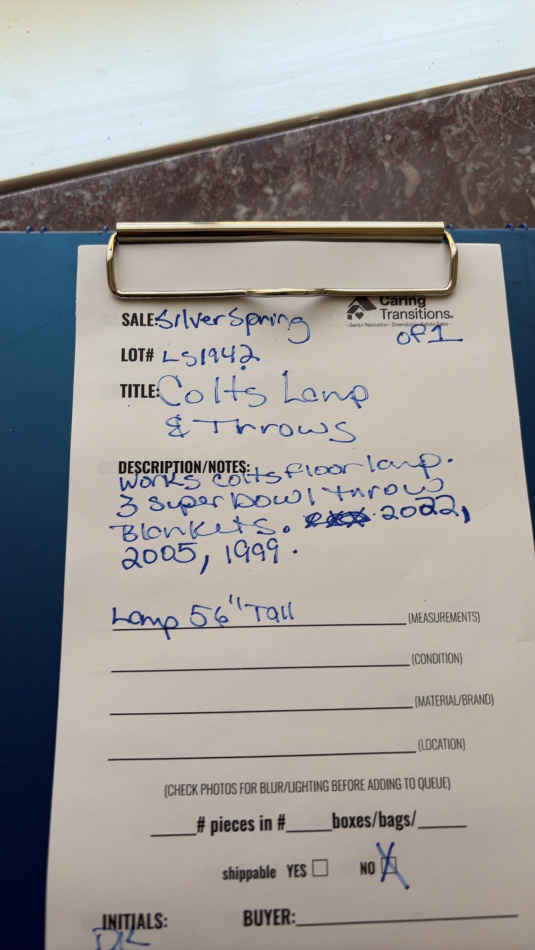 Caring
Transitions
SALE: Silver Spring
OP1
LOT# LS1942
TITLE: Colts Lamp
& Throws
DESCRIPTION/NOTES:
Works Colts floor lamp.
3 Super bowl throw
Blankets. 2022,
2005, 1999.
Lamp 56" Tall (MEASUREMENTS)
(CONDITION)
(MATERIAL/BRAND)
(LOCATION)
(CHECK PHOTOS FOR BLUR/LIGHTING BEFORE ADDING TO QUEUE)
____# pieces in #____boxes/bags/____
shippable YES ☐ NO ☒
INITIALS: BUYER:
DK